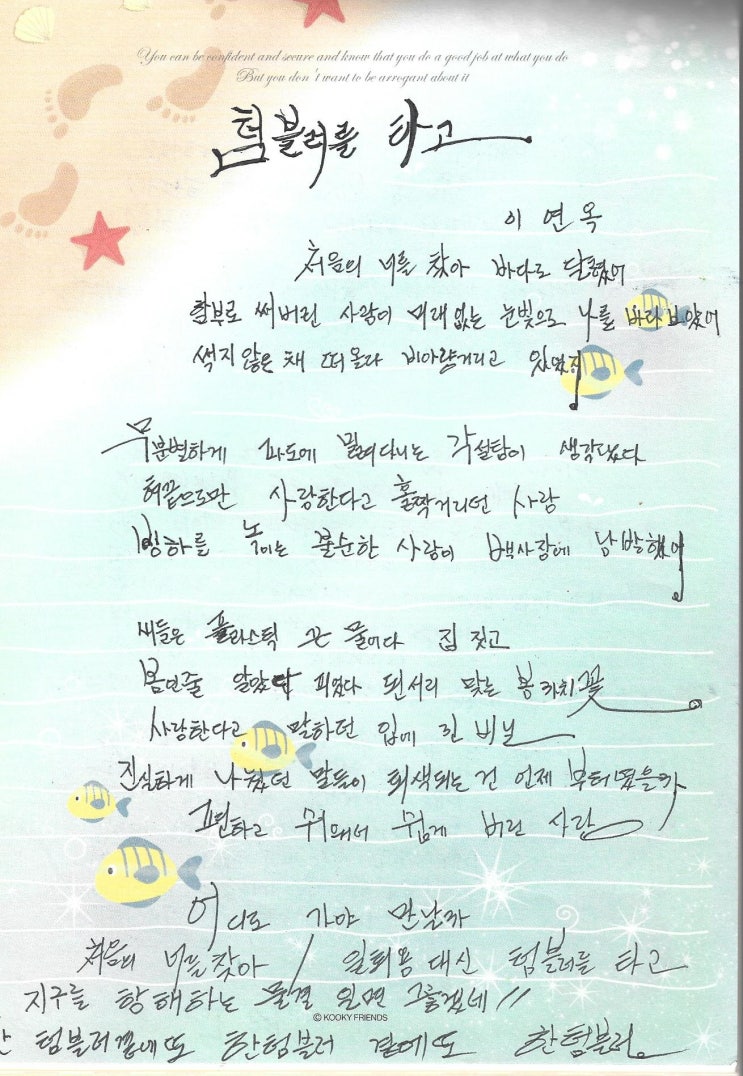 You can be confident and secure and know that you do a good job at what you do
But you don't want to be arrogant about it
텀블러를 타고
이연옥
처음의 너를 찾아 바다로 달렸어
함부로 써버린 사랑이 미래없는 눈빛으로 나를 바라보았어
썩지 않은 채 떠올라 비아냥거리고 있었지
무분별하게 파도에 밀려다니는 각설탕이 생각났다
혀끝으로만 사랑한다고 홀짝거리던 사랑
빙하를 녹이는 불순한 사랑이 백사장에 남발했어
새들은 플라스틱 끈 물어다 집 짓고
봄인줄 알았다 피었다 된서리 맞는 봄까치꽃
사랑한다고 말하던 입에 낀 비닐
진실하게 나눴던 말들이 퇴색되는 건 언제부터였을까
편하고 쉬워서 쉽게 버린 사랑
어디로 가야 만날까
처음의 너를 찾아 / 일회용 대신 텀블러를 타고
지구를 항해하는 물결 일면 그렇겠네 //
텀블러 한텀블러 곁에도 한텀블러
© KOOKY FRIENDS